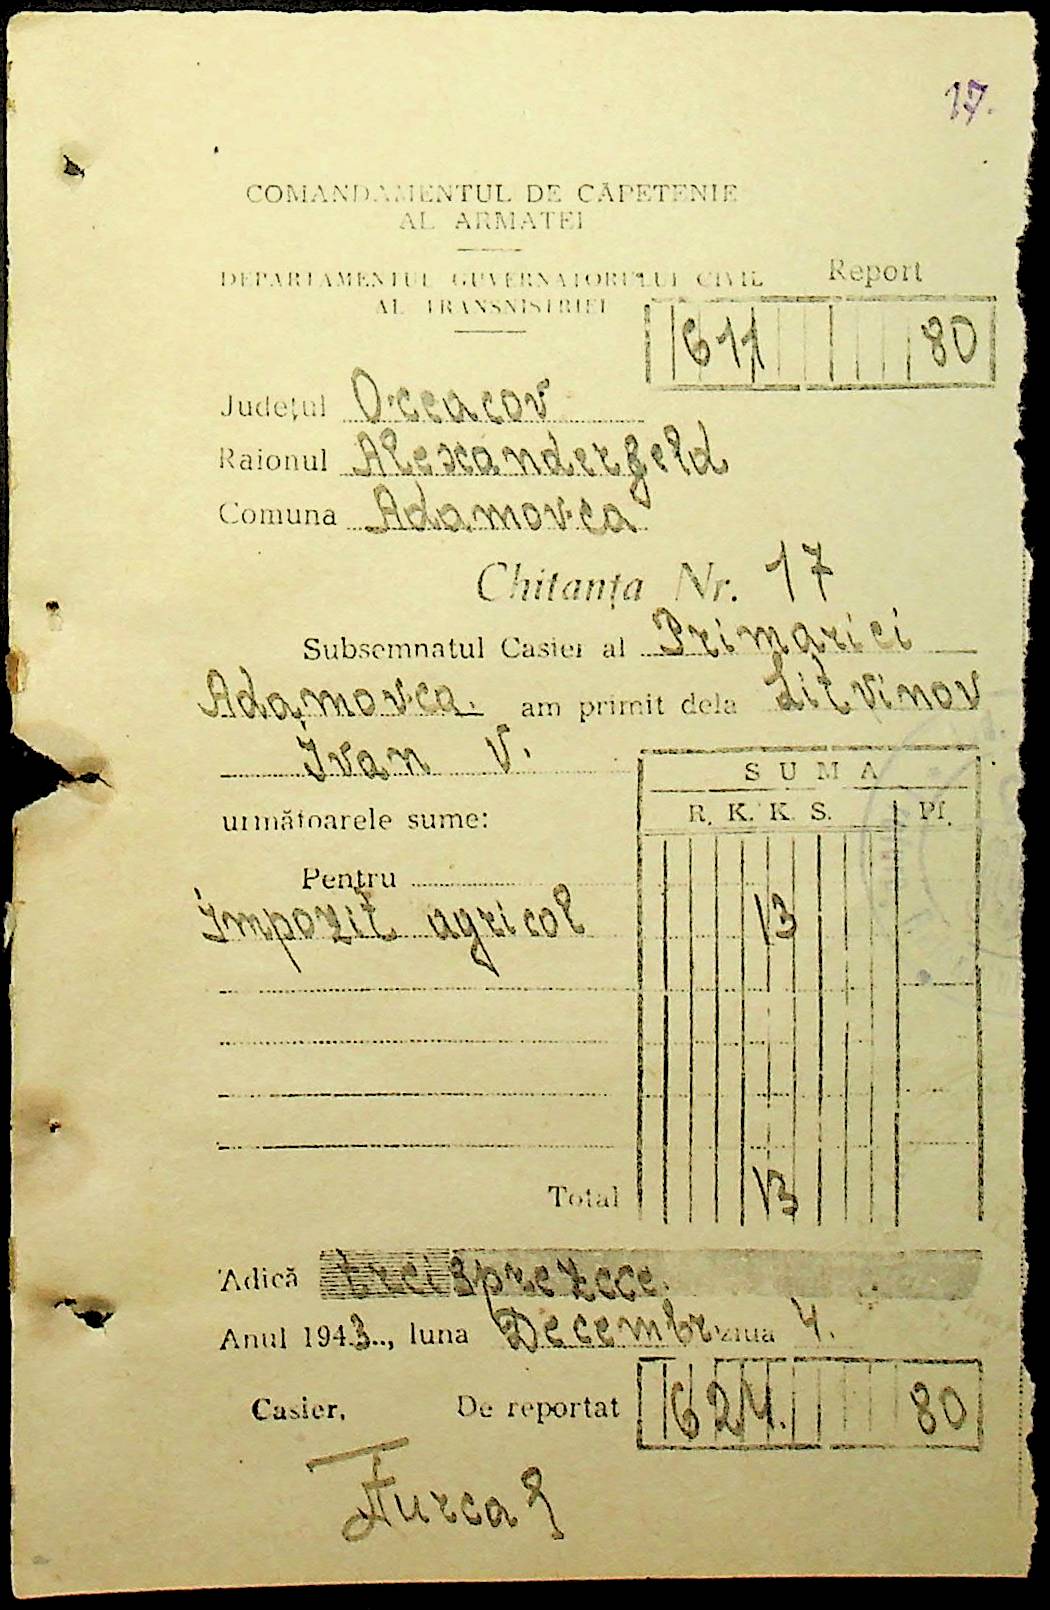 17.
COMANDAMENTUL DE CĂPETENIE
AL ARMATEI
DEPARTAMENTUL GUVERNATORULUI CIVIL
AL TRANSNISTRIEI
Report
611 80
Județul Oceacov
Raionul Alexanderfeld
Comuna Adamovca
Chitanța Nr. 17
Subsemnatul Casier al Primariei
Adamovca. am primit dela Litvinov
Ivan V.
SUMA
următoarele sume:
R. K. K. S. Pf.
Pentru
Impozit agricol 13
Total 13
Adică treisprezece.
Anul 1943.., luna Decembr ziua 4.
Casier, De reportat 624. 80